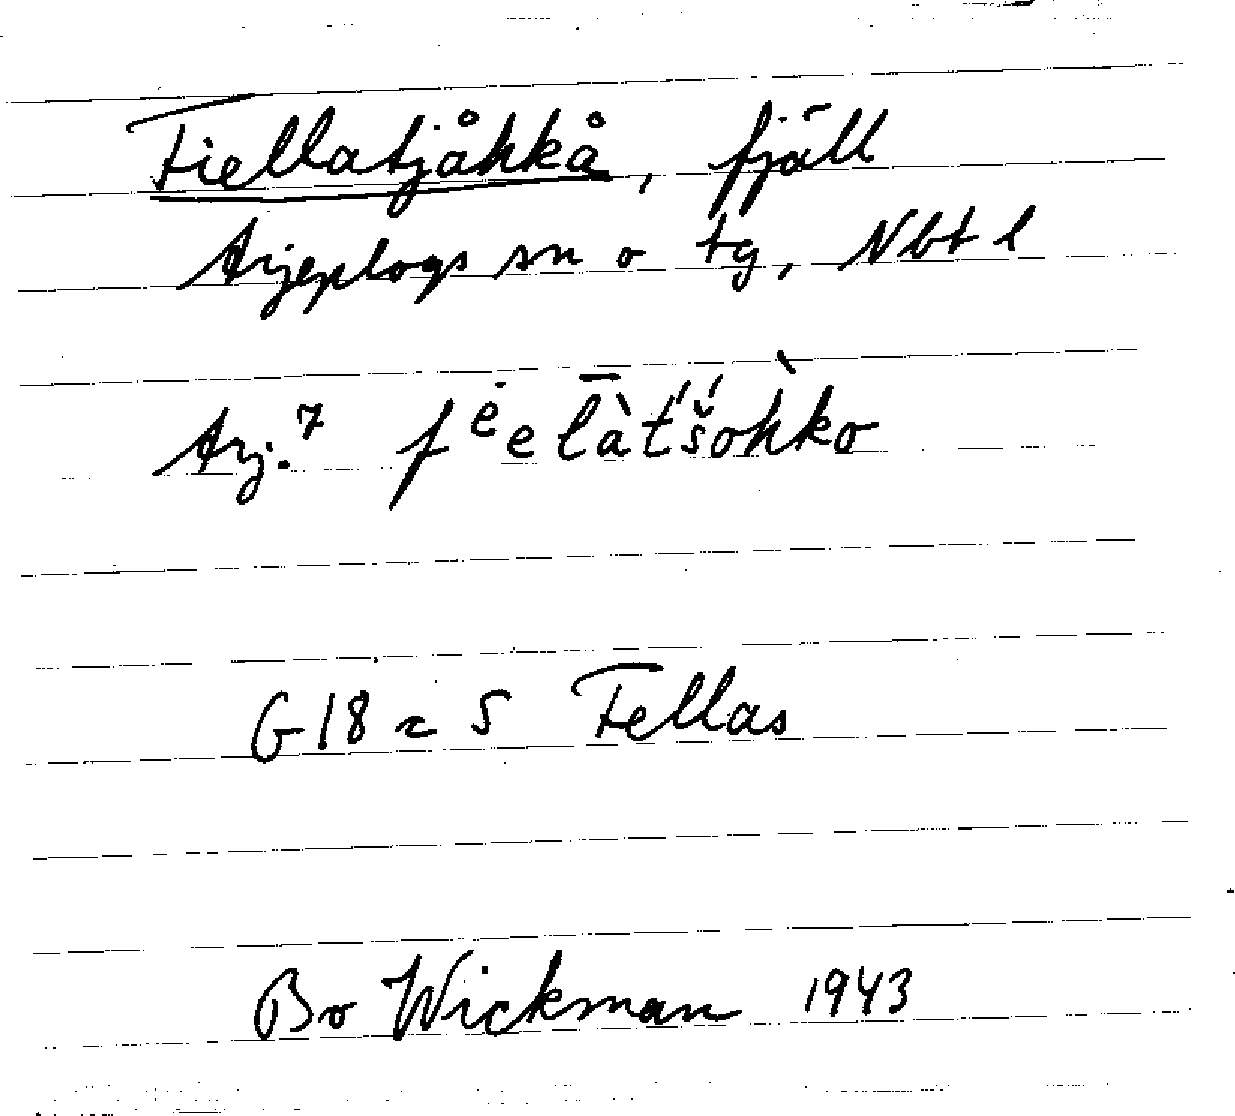 Fiellatjåhkå, fjäll
Arjeplogs sn o tg, Nbt l
Arj.7 f ė e l̄ à t́ š́ o h̀ k o
G18 = S Fellas
Bo Wickman 1943